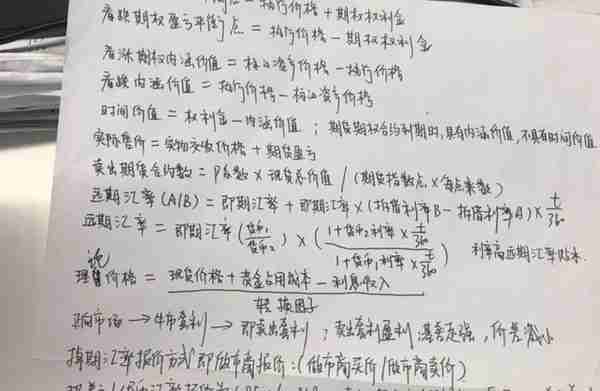 执行价格 + 期权权利金
看跌期权盈亏平衡点 = 执行价格 - 期权权利金
看涨期权内涵价值 = 标的资产价格 - 执行价格
看跌内涵价值 = 执行价格 - 标的资产价格
时间价值 = 权利金 - 内涵价值 ; 期货期权合约到期时,具有内涵价值,不具有时间价值.
实际售价 = 实物交收价格 + 期货盈亏
卖出期货合约数 = β系数 × 现货总价值 / (期货指数点 × 每点乘数)
远期汇率(A/B) = 即期汇率 + 即期汇率 × (拆借利率B - 拆借利率A) × t/360
远期汇率 = 即期汇率(货币1/货币2) × (1+货币2利率 × t/360 / 1+货币1利率 × t/360) 利率高远期汇率贴水.
理论价格 = 现货价格 + 资金占用成本 - 利息收入 / 转换因子
市场 → 牛市套利 → 即卖出套利 ; 卖出套利盈利 基差走强 , 价差减小
掉期汇率报价方式 即做市商报价:(做市商买价/做市商卖价)